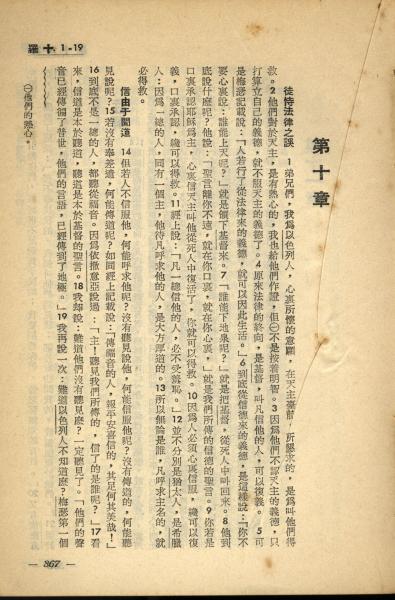 羅 十 1-19
第十章
徒恃法律之誤 1弟兄們，我為以色列人，心裏所懷的意願，在天主臺前所懇求的，是為叫他們得
救。2他們對於天主，是有熱心的，我也給他們作證，但㊀不是按着明智。3因為他們不認天主的義德，只
打算立自己的義德，就不服天主的義德了。4原來法律的終向，是基督，叫凡信他的人，可以復義。5可
是梅瑟記載說：「人若行了從法律來的義德，就可以因此生活。」6到底從信德來的義德，是這樣說：「你不
要心裏說：誰能上天呢？」就是領下基督來。7「誰能下地泉呢？」就是把基督，從死人中叫回來。8他到
底說什麼呢？他說：「聖言離你不遠，就在你口裏，就在你心裏，」就是我們所傳的信德的聖言。9你若是
口裏承認耶穌為主，心裏信天主叫他從死人中復活了，你就可以得救。10因為人必須心裏信服，纔可以復
義，口裏承認，纔可以得救。11經上說：「凡一總信他的人，必不受羞恥。」12並不分別是猶太人，是希臘
人：因為一總的人，同有一個主，他待凡呼求他的人，是大方厚道的。13所以無論是誰，凡呼求主名的，就
必得救。
信由于聞道 14但若人不信服他，何能呼求他呢？沒有聽見說他，何能信服他呢？沒有傳道的，何能聽
見說呢？15若沒有奉差遣，何能傳道呢？如同經上記載說：「傳福音的人，報平安喜信的，其足何其美哉！」
16到底不是一總的人，都聽從福音。因為依撒意亞說過：「主！聽見我們所傳的，信了的是誰呢？」17看
來，信道是本於聽道，聽道是本於基督的聖言。18我却說：難道他們沒有聽見麼？一定聽見了。「他們的聲
音已經傳徧了普世，他們的言語，已經傳到了地極。」19我再說一次：難道以色列人不知道麼？梅瑟第一個
㊀他們的熱心。
— 367 —